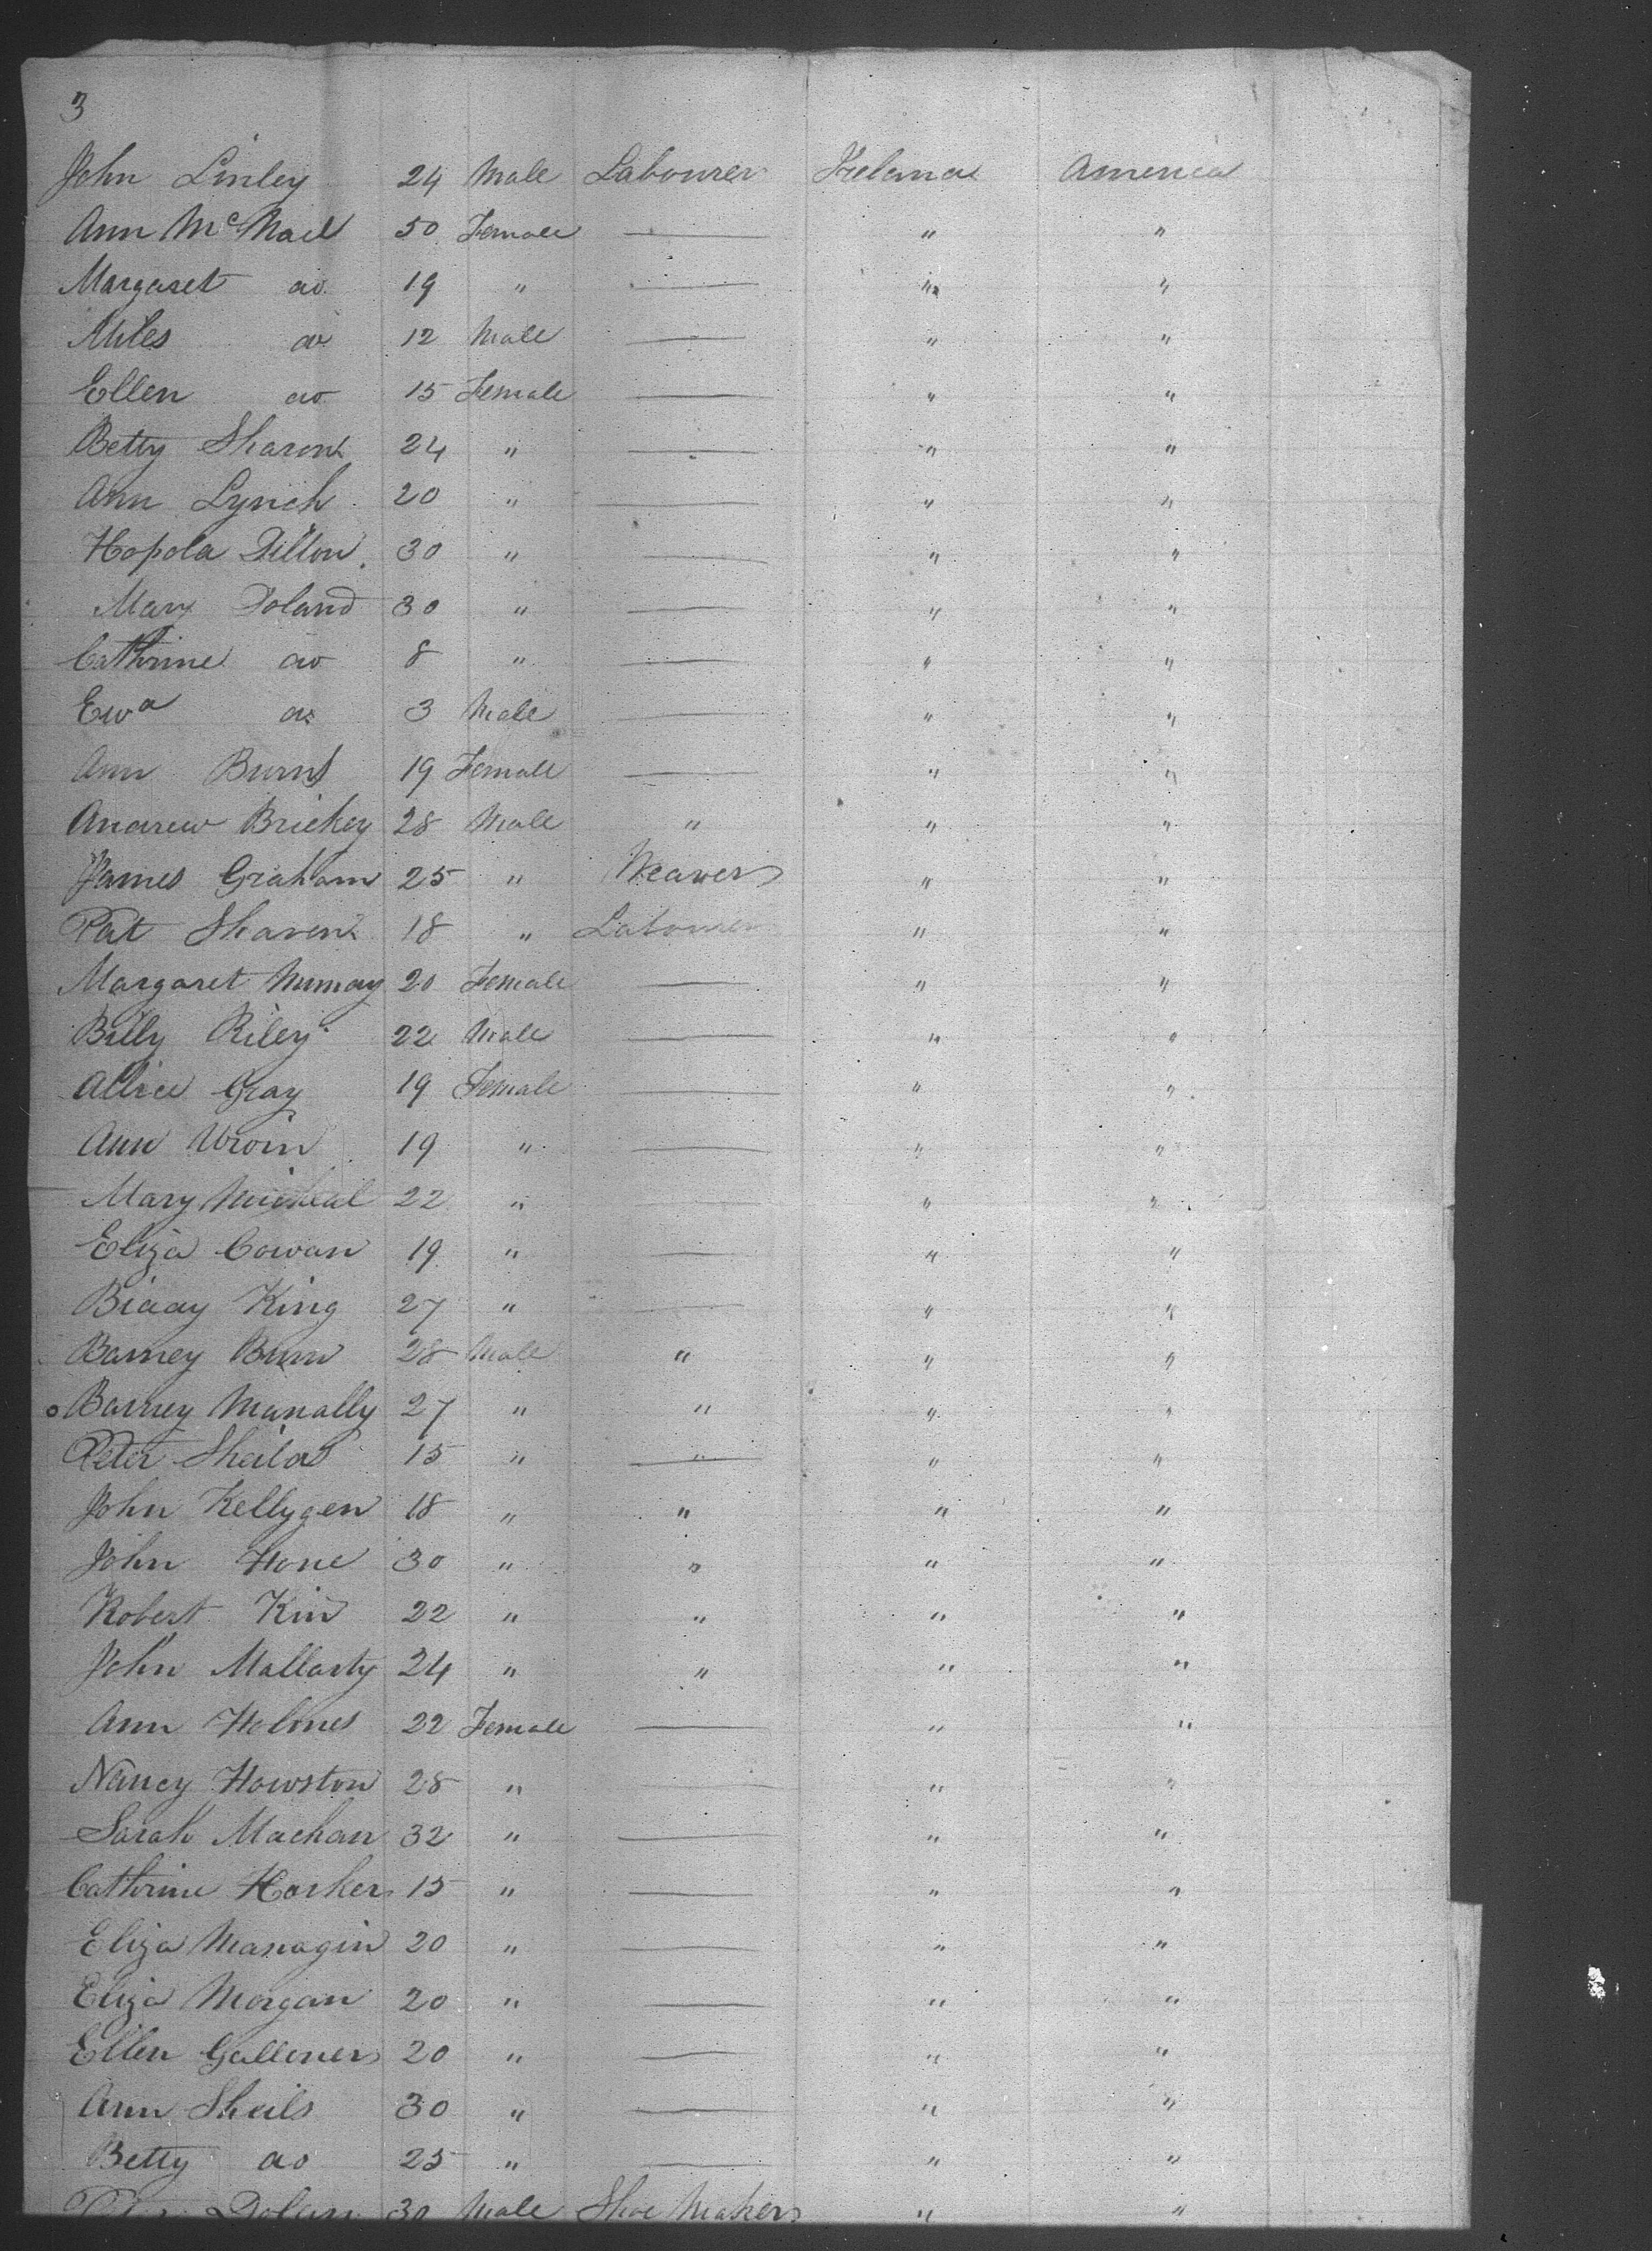 3
John Linley 24 Male Labourer Ireland America
Ann McNail 50 Female — " "
Margaret do 19 " — " "
Miles do 12 Male — " "
Ellen do 15 Female — " "
Betty 24 " — " "
Ann Lynch 20 " — " "
Hopola Dillon 30 " — " "
Mary Doland 30 " — " "
Cathrine do 8 " — " "
Ewd do 3 Male — " "
Ann Burns 19 Female — " "
Andrew Brickey 28 Male " " "
James Graham 25 " Weaver " "
Pat 18 " Labourer " "
Margaret 20 Female — " "
Billy Riley 22 Male — " "
Allice Gray 19 Female — " "
Ann 19 " — " "
Mary 22 " — " "
Eliza Cowan 19 " — " "
Biddy King 27 " — " "
Barney Burn 28 Male " " "
Barney Manally 27 " " " "
Peter 15 " " " "
John Kellygen 18 " " " "
John Hone 30 " " " "
Robert Kin 22 " " " "
John Mallarty 24 " " " "
Ann Holmes 22 Female — " "
Nancy Howston 28 " — " "
Sarah Machan 32 " — " "
Cathrine Harker 15 " — " "
Eliza Managin 20 " — " "
Eliza Morgan 20 " — " "
Ellen Galloner 20 " — " "
Ann Sheils 30 " — " "
Betty do 25 " — " "
Dolan 30 Male Shoe Maker " "